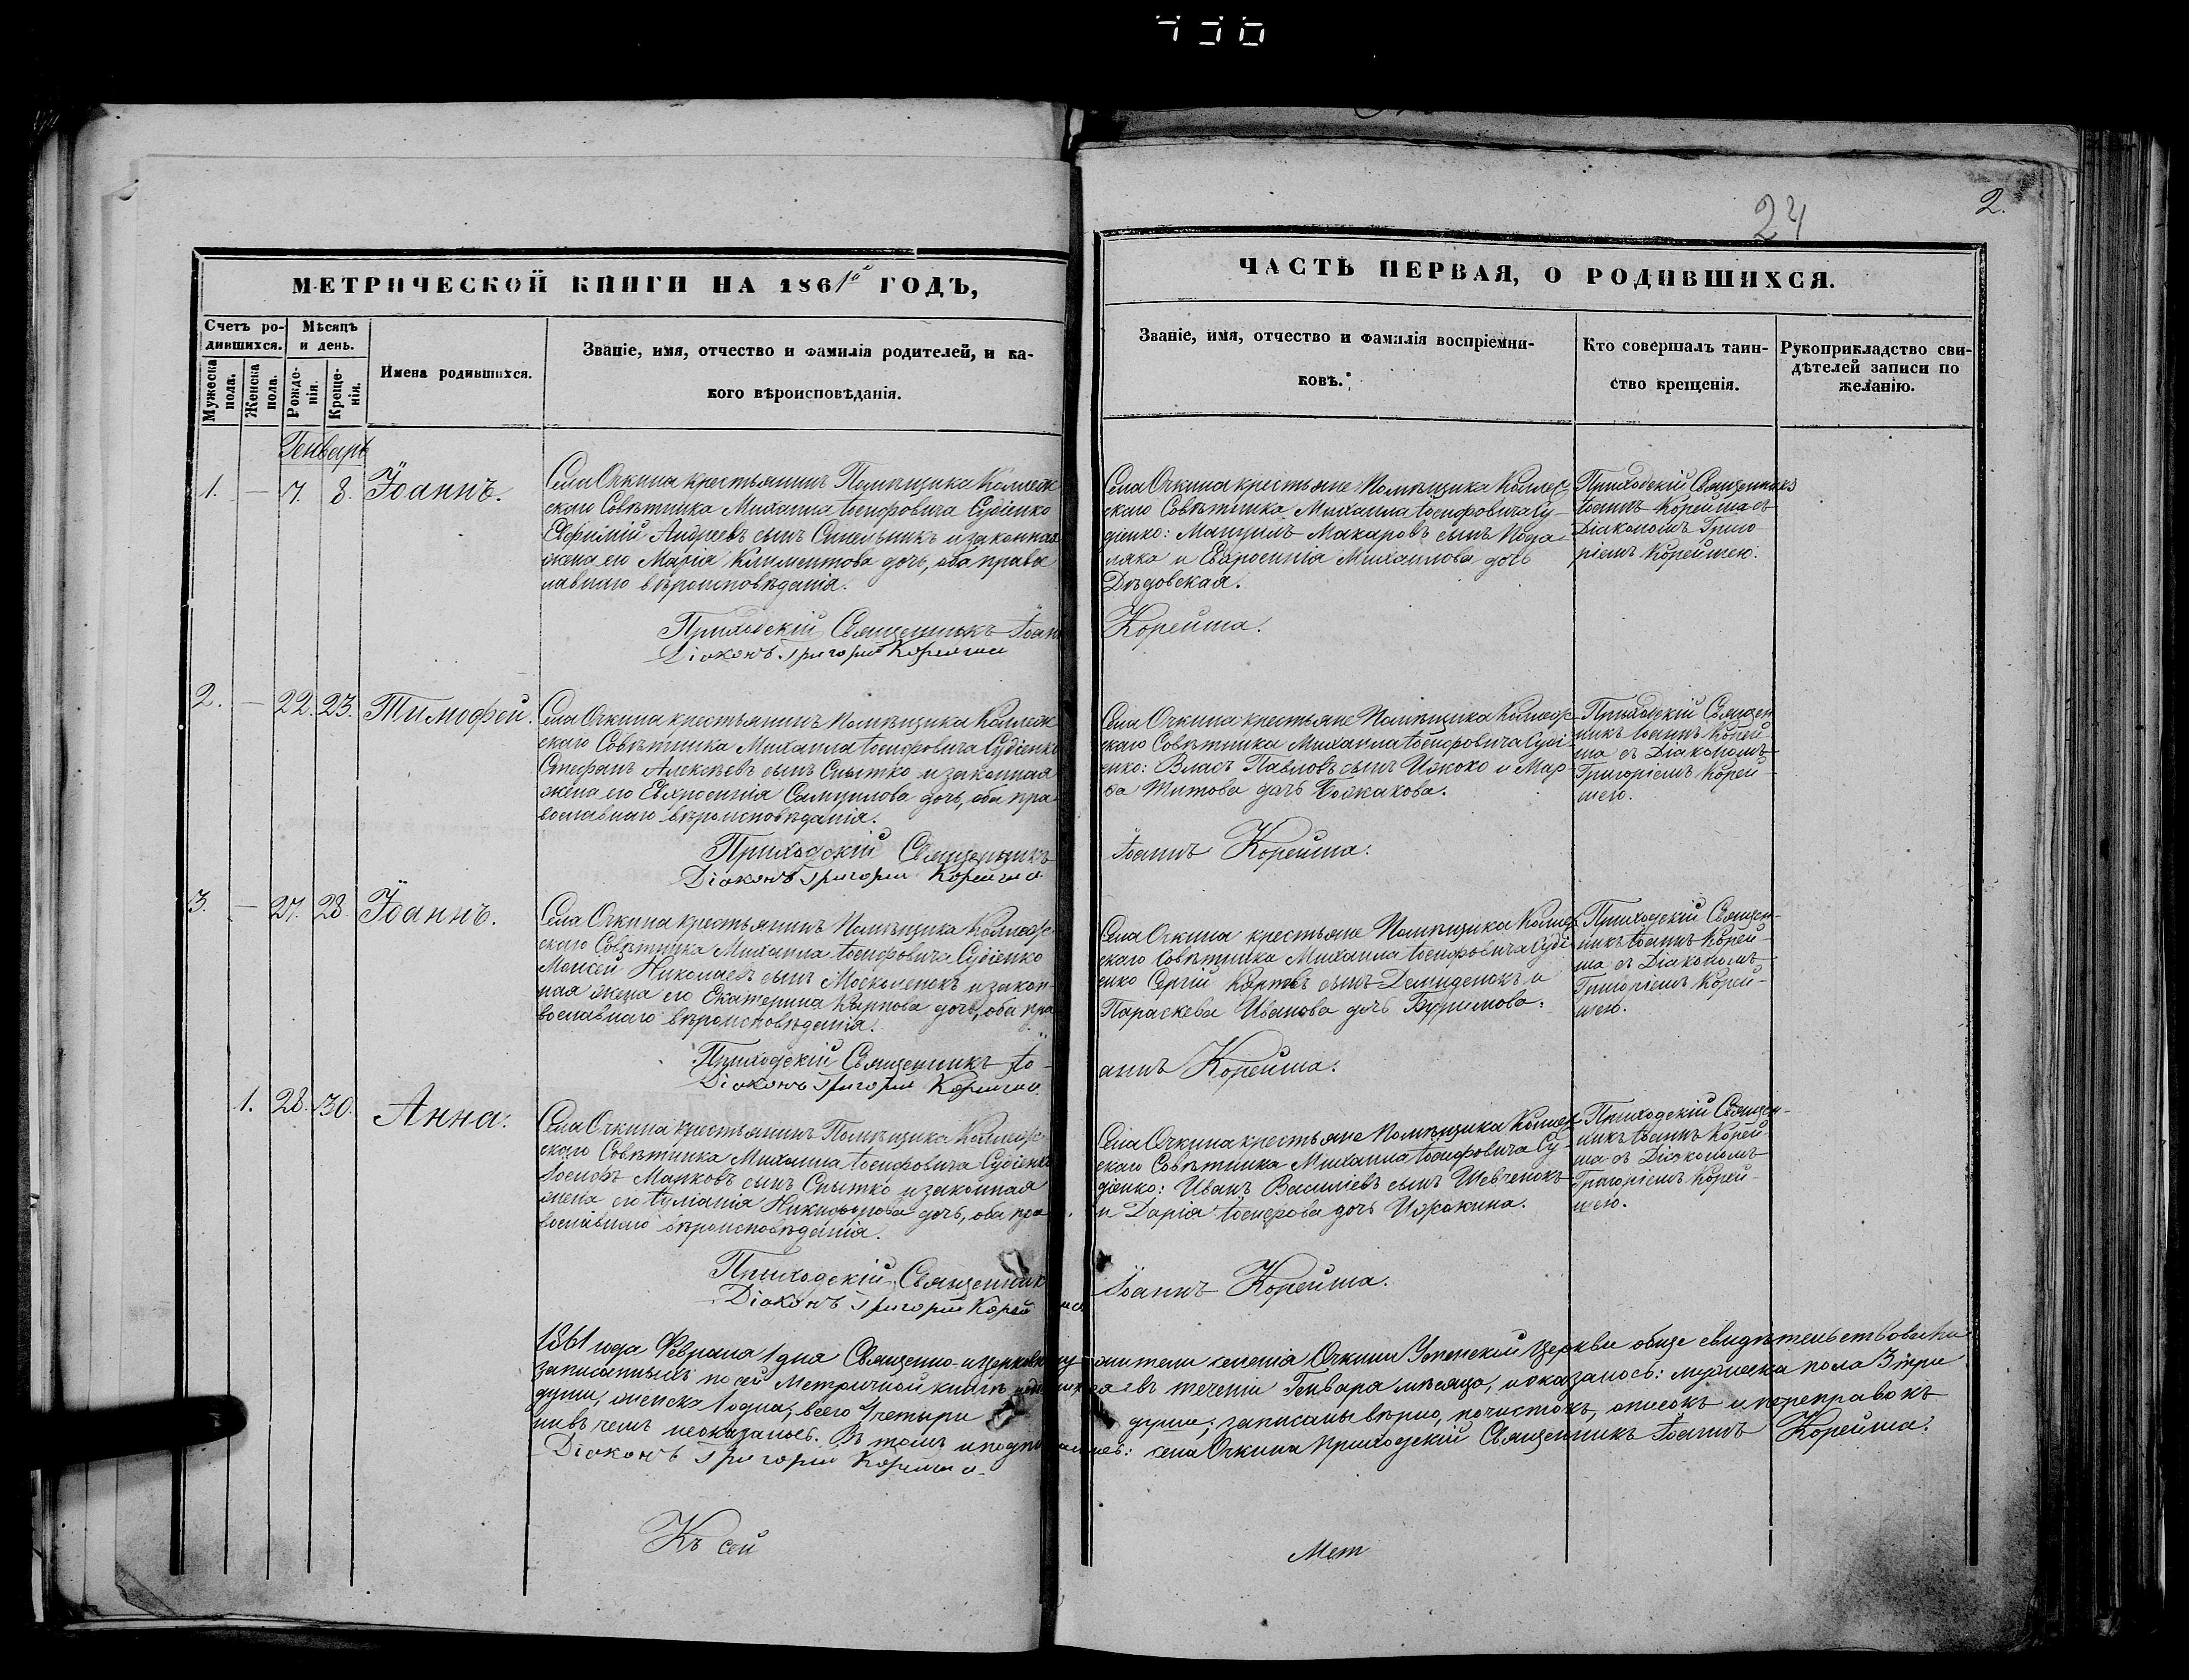 24
2.
МЕТРИЧЕСКОЙ КНИГИ НА 1861й ГОДЪ,
Счетъ ро-
дившихся.
Мѣсяцъ
и день.
Мужеска
пола.
Женска
пола.
Рожде-
нія.
Креще-
нія.
Имена родившихся.
Званіе, имя, отчество и фамилія родителей, и ка-
кого вѣроисповѣданія.
ЧАСТЬ ПЕРВАЯ, О РОДИВШИХСЯ.
Званіе, имя, отчество и фамилія воспріемни-
ковъ.
Кто совершалъ таин-
ство крещенія.
Рукоприкладство сви-
дѣтелей записи по
желанію.
Генварь
1. — 7. 8. Іоаннъ.
Села Очкина крестьянинъ Помѣщика Коллеж
скаго Совѣтника Михаила Іосифовича Судіенко
Евфимій Андреевъ сынъ Синельникъ и законная
жена его Марія Климентова дочь, оба право
славнаго вѣроисповѣданія.
Приходскій Священникъ Іоан
Діаконъ Григорій Корейша
Села Очкина крестьяне Помѣщика Коллеж
скаго Совѣтника Михаила Іосифовича Су-
діенко: Макаровъ сынъ
и Евфросинія Михаилова дочь
Дѣдовская.
Корейша.
Приходскій Священникъ
Іоаннъ Корейша съ
Діакономъ Григо
ріемъ Корейшею.
2. — 22. 23. Тимофей.
Села Очкина крестьянинъ Помѣщика Коллеж
скаго Совѣтника Михаила Іосифовича Судіенко
Стефанъ Алексѣевъ сынъ Снытко и законная
жена его Евфросинія Самуилова дочь, оба пра
вославнаго вѣроисповѣданія.
Приходскій Священникъ
Діаконъ Григорій Корейша
Села Очкина крестьяне Помѣщика Коллеж
скаго Совѣтника Михаила Іосифовича Суді
енко: Власъ Павловъ сынъ Ижоко и Мар-
ѳа Титова дочь Божакова.
Іоаннъ Корейша.
Приходскій Священ
никъ Іоаннъ Корей-
ша съ Діакономъ
Григоріемъ Корей-
шею.
3. — 27. 28. Іоаннъ.
Села Очкина крестьянинъ Помѣщика Коллеж
скаго Совѣтника Михаила Іосифовича Судіенко
Моисей Николаевъ сынъ Москаленокъ и закон-
ная жена его Екатерина Карпова дочь, оба пра
вославнаго вѣроисповѣданія.
Приходскій Священникъ Іо-
Діаконъ Григорій Корейша
Села Очкина крестьяне Помѣщика Коллеж
скаго Совѣтника Михаила Іосифовича Суді
енко Сергій Карповъ сынъ Демиденокъ и
Параскева Иванова дочь
аннъ Корейша.
Приходскій Священ-
никъ Іоаннъ Корей-
ша съ Діакономъ
Григоріемъ Корей-
шею.
1. 28. 30. Анна.
Села Очкина крестьянинъ Помѣщика Коллеж
скаго Совѣтника Михаила Іосифовича Судіенко
Іосифъ Марковъ сынъ Снытко и законная
жена его Іуліанія Никифорова дочь, оба пра
вославнаго вѣроисповѣданія.
Приходскій Священник
Діаконъ Григорій Корей
Села Очкина крестьяне Помѣщика Коллеж
скаго Совѣтника Михаила Іосифовича Су-
діенко: Иванъ Василіевъ сынъ Шевченокъ
и Дарія Іосифова дочь Ижокина.
Іоаннъ Корейша.
Приходскій Священ-
никъ Іоаннъ Корей-
ша съ Діакономъ
Григоріемъ Корей-
шею.
1861 года Февраля 1 дня Священно-и церковнослужители селенія Очкина Успенской Церкви обще свидѣтельствовали
записанныхъ по сей Метричной книгѣ родившихся въ теченіи Генваря мѣсяца, и оказалось: мужеска пола 3 три
души, женска 1 одна; всего 4 четыре души; записаны вѣрно, почистокъ, описокъ и переправокъ
ни въ чемъ неоказалось. Въ томъ и подписались: села Очкина Приходскій Священникъ Іоаннъ Корейша.
Діаконъ Григорій Корейша
Къ сей
Мет